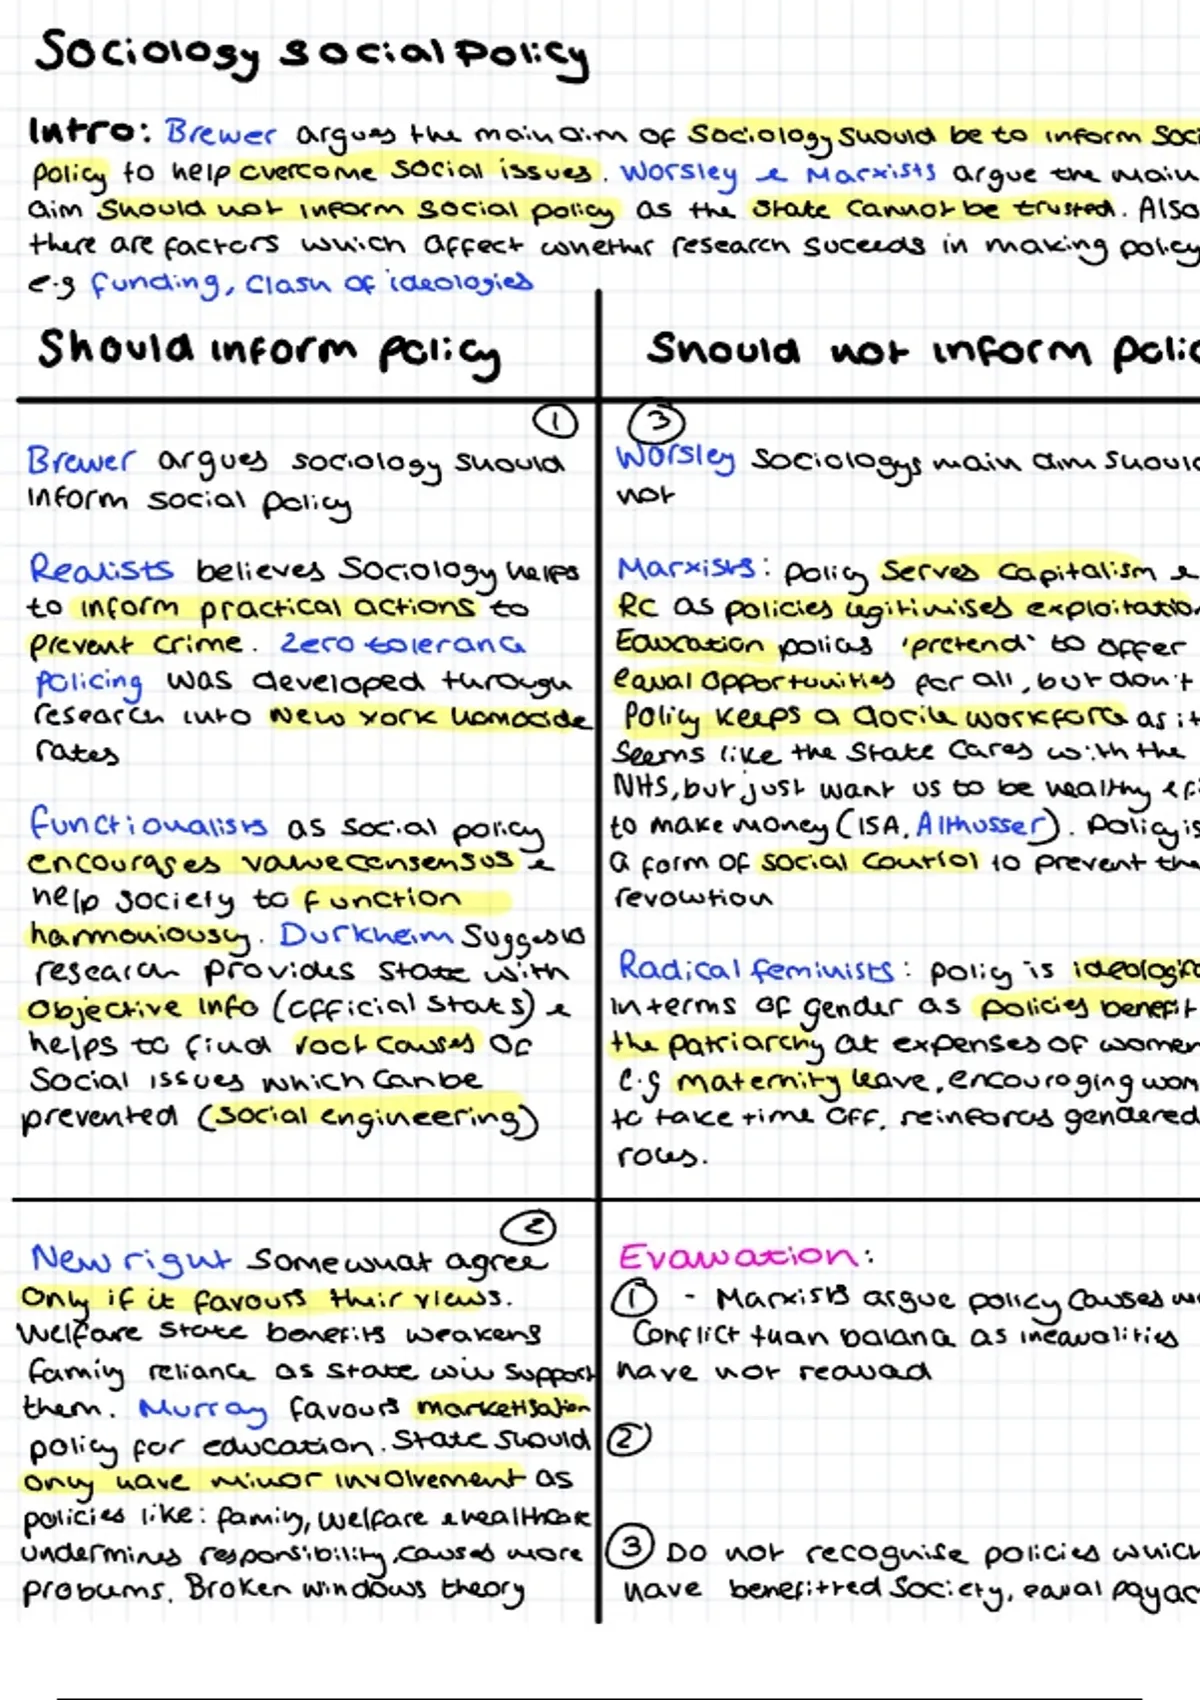 Sociology social Policy
Intro: Brewer argues the main aim of Sociology should be to inform Soc
policy to help overcome social issues. Worsley & Marxists argue the main
aim should not inform social policy as the state cannot be trusted. Also
there are factors which affect whether research suceeds in making policy
e.g funding, clash of ideologies
Should inform policy
①
Brewer argues sociology should
inform social policy
Realists believes Sociology helps
to inform practical actions to
prevent crime. Zero tolerance
policing was developed through
research into New York homocide
rates
Functionalists as social policy
encourages value consensus &
help society to function
harmoniously. Durkheim suggests
research provides state with
objective info (official stats) &
helps to find root causes of
social issues which can be
prevented (social engineering)
②
New right somewhat agree
only if it favours their views.
Welfare state benefits weakens
family reliance as state will support
them. Murray favours marketisation
policy for education. State should
only have minor involvement as
policies like: family, welfare & healthcare
undermines responsibility, causes more
problems. Broken windows theory
Should not inform polic
③
Worsley Sociologys main aim should
not
Marxists: policy serves capitalism &
RC as policies legitimises exploitation
Education policies 'pretend' to offer
equal opportunities for all, but don't
Policy keeps a docile workforce as it
seems like the state cares with the
NHS, but just want us to be healthy & fi
to make money (ISA, Althusser). Policy is
a form of social control to prevent the
revolution
Radical feminists: policy is ideologica
in terms of gender as policies benefit
the patriarchy at expenses of women
e.g maternity leave, encouraging wom
to take time off, reinforces gendered
roles.
Evaluation:
① - Marxists argue policy causes mo
conflict than balance as inequalities
have not reduced
②
③ Do not recognise policies which
have benefitted society, equal pay ac